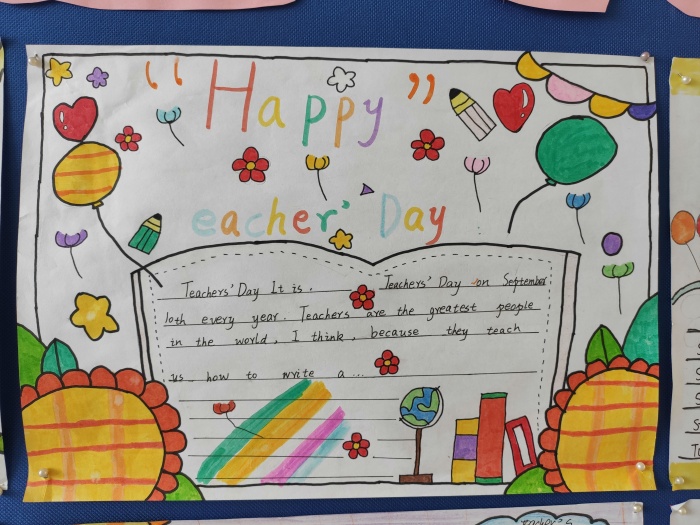 “Happy”
eacher’ Day
Teachers' Day It is . Teachers' Day on September
10th every year. Teachers are the greatest people
in the world, I think, because they teach
us how to write a ...